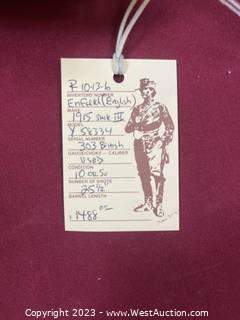 R 1013-6
INVENTORY NUMBER
Enfield (English)
MAKE
1915 Mark III
MODEL
Y 58334
SERIAL NUMBER
303 British
GAUGE/CHOKE – CALIBER
Used
CONDITION
10 or 5
NUMBER OF SHOTS
25 1/2
BARREL LENGTH
$ 1488 00
Copyright 2023 - www.WestAuction.com